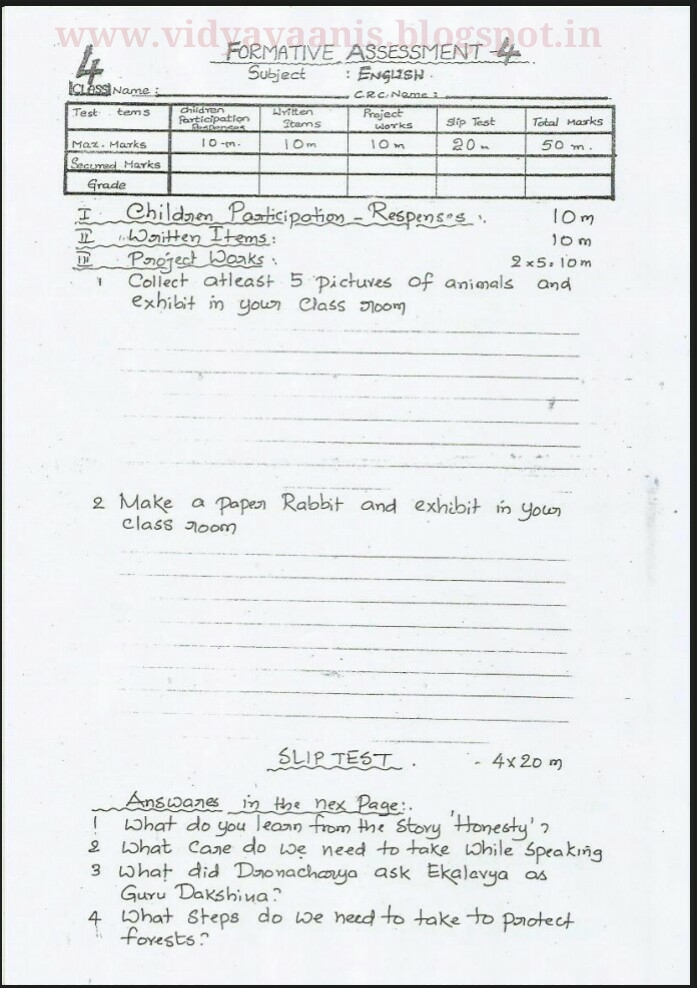 www.vidyayaanis.blogspot.in
FORMATIVE ASSESSMENT - 4
4
Subject : ENGLISH.
CLASS Name : C.R.C. Name :
Test tems Children Participation Respenses Written Items Project Works Slip Test Total Marks
Max. Marks 10 m. 10 m 10 m 20 m 50 m.
Secured Marks
Grade
I Children Participation - Respenses :. 10 m
II Written Items : 10 m
III Project Works : 2 x 5 = 10 m
1 Collect atleast 5 pictures of animals and
exhibit in your Class room
2 Make a paper Rabbit and exhibit in your
class room
SLIP TEST . - 4 x 20 m
Answares in the nex Page :.
1 What do you learn from the Story 'Honesty' ?
2 What Care do we need to take While Speaking
3 What did Dronacharya ask Ekalavya as
Guru Dakshina ?
4 What Steps do we need to take to protect
forests ?